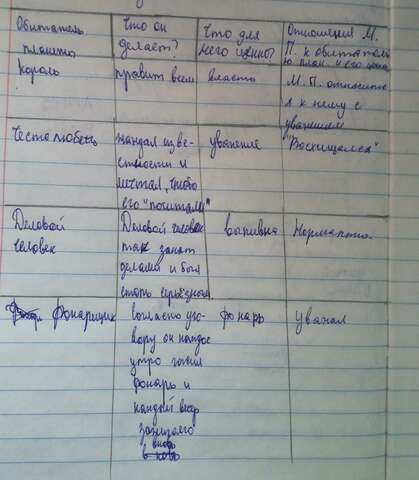 Обитатель Что он Что для Отношения М.
планеты делает? него ценно? П. к обитателю
план. и его
Король правит всем власть М. П. относится
к нему с
уважением
Честолюбец жаждал изве- уважение "Восхищался"
стности и
мечтал, чтобы
его "почитали"
Деловой Деловой человек Нормально.
человек так занят
делами и боя
стать серьёзном.
Фонарщик согласно уго- фонарь Уважал
вору он каждое
утро гасил
фонарь и
каждый вечер
зажигал его
вновь